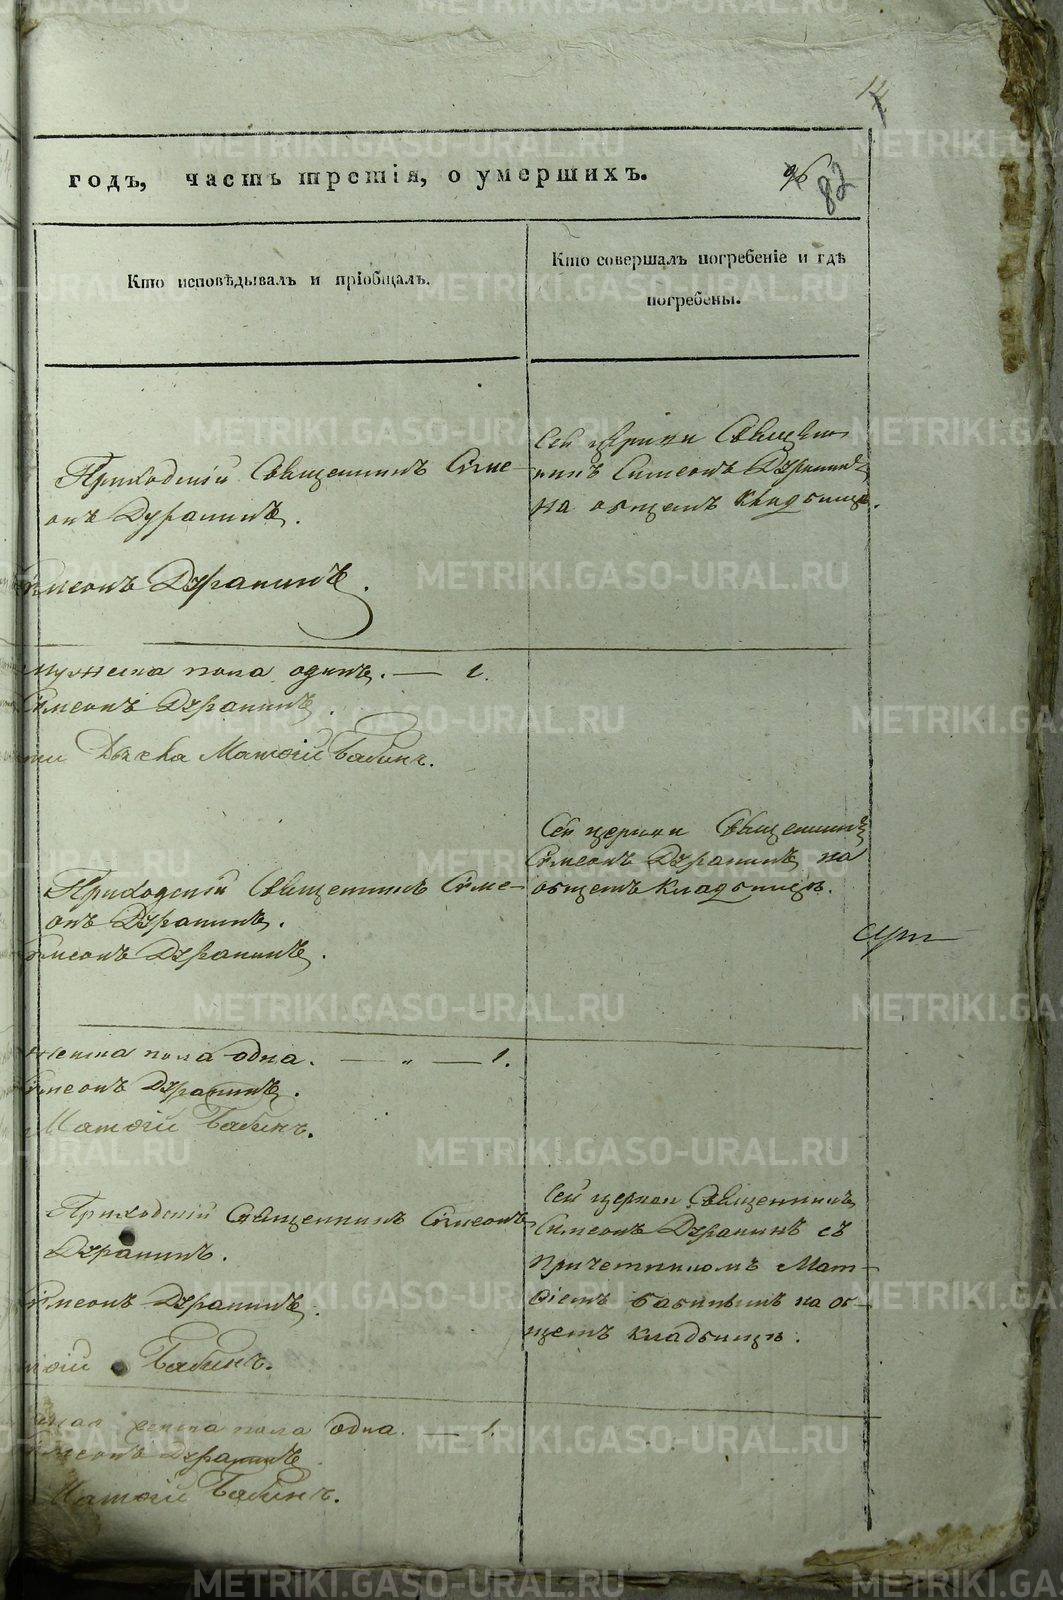 годъ, часть третія, о умершихъ.
96
82
Кто исповѣдывалъ и пріобщалъ.
Кто совершалъ погребеніе и гдѣ
погребены.
Приходскій Священникъ Симе-
онъ Дурапинъ.
Сей церкви Священ-
никъ Симеонъ Дурапинъ
на общемъ кладбищѣ.
Симеонъ Дурапинъ.
мужеска пола одинъ. — 1.
Симеонъ Дурапинъ.
Дьячка Матѳій Бабинъ.
Приходскій Священникъ Симе-
онъ Дурапинъ.
Симеонъ Дурапинъ.
Сей церкви Священникъ
Симеонъ Дурапинъ на
общемъ кладбищѣ.
женска пола одна. — „ — 1.
Симеонъ Дурапинъ.
Матѳій Бабинъ.
Приходскій Священникъ Симеонъ
Дурапинъ.
Симеонъ Дурапинъ.
Бабинъ.
Сей церкви Священникъ
Симеонъ Дурапинъ съ
причетникомъ Мат-
ѳіемъ Бабинымъ на об-
щемъ кладбищѣ.
женска пола одна. — 1.
Симеонъ Дурапинъ
Матѳій Бабинъ.
METRIKI.GASO-URAL.RU